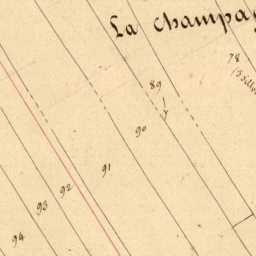 La Champa
78
89
90
91
92
93
94